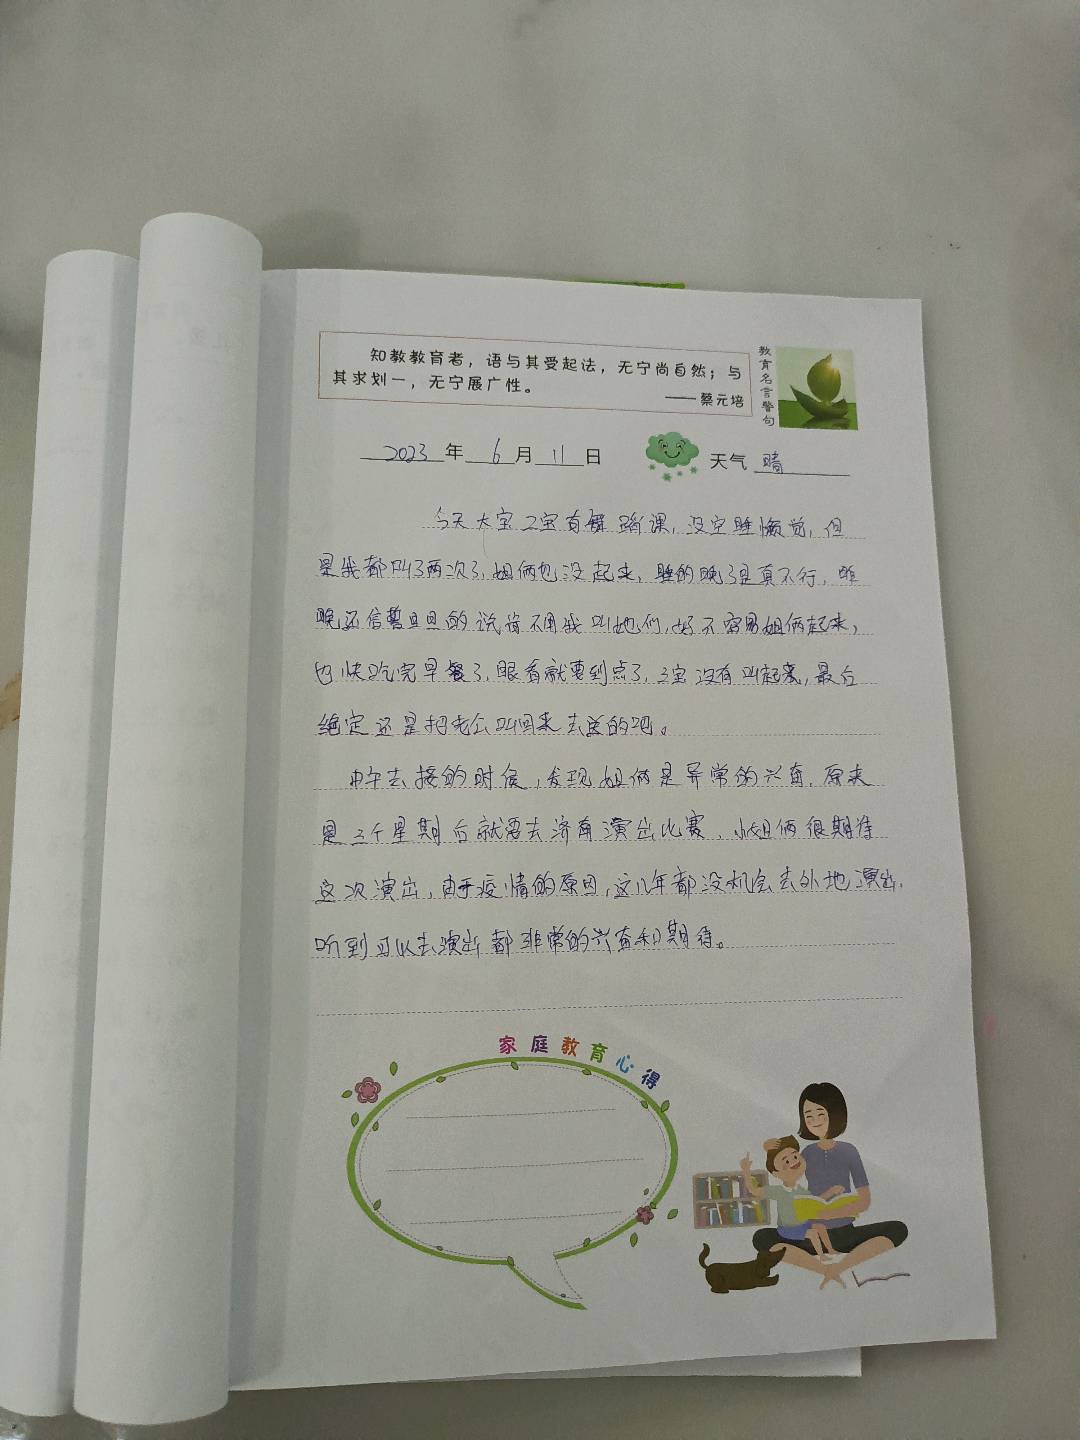 知教教育者，语与其受起法，无宁尚自然；与
其求划一，无宁展广性。
——蔡元培
教育名言警句
2023年6月11日
天气 晴
今天大宝二宝有舞蹈课，没定睡懒觉，但
是我都叫了两次了，姐俩也没起来，睡的晚了是真不行，昨
晚还信誓旦旦的说肯不用我叫她们，好不容易姐俩起来，
也快吃完早餐了，眼看就要到点了，三宝没有叫起来，最后
绝定还是把老公叫回来去送的吧。
中午去接的时候，发现姐俩是异常的兴奋，原来
是三个星期后就要去济南演出比赛，小姐俩很期待
这次演出，由于疫情的原因，这几年都没机会去外地演出，
听到可以去演出都非常的兴奋和期待。
家庭教育心得